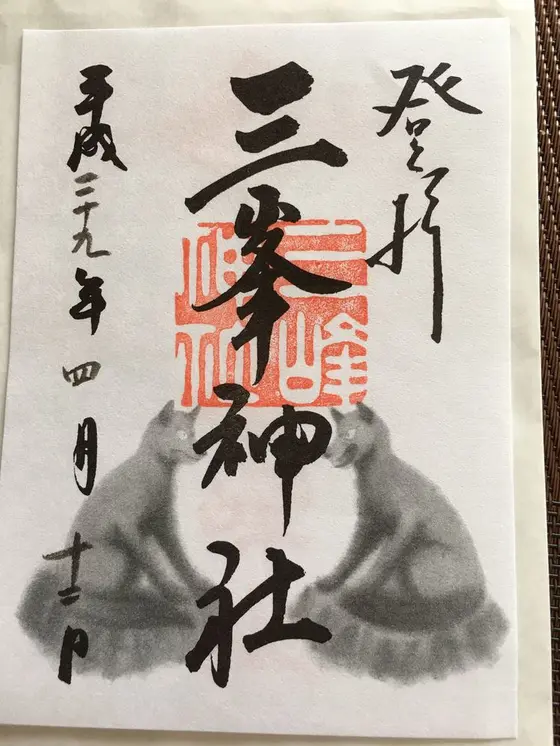 登拝
三峯神社
三峰
神社
平成二十九年四月十二日